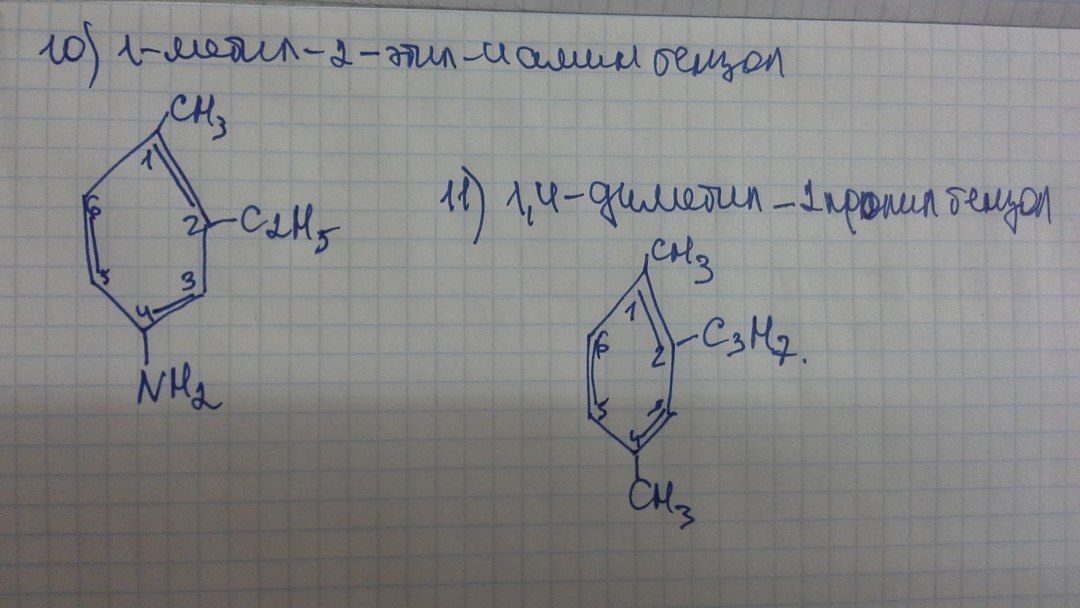 10) 1-метил-2-этил-4 амин бензол
CH3
1
6
2
C2H5
5
3
4
NH2
11) 1,4-диметил-2пропилбензол
CH3
1
6
2
C3H7.
5
3
4
CH3